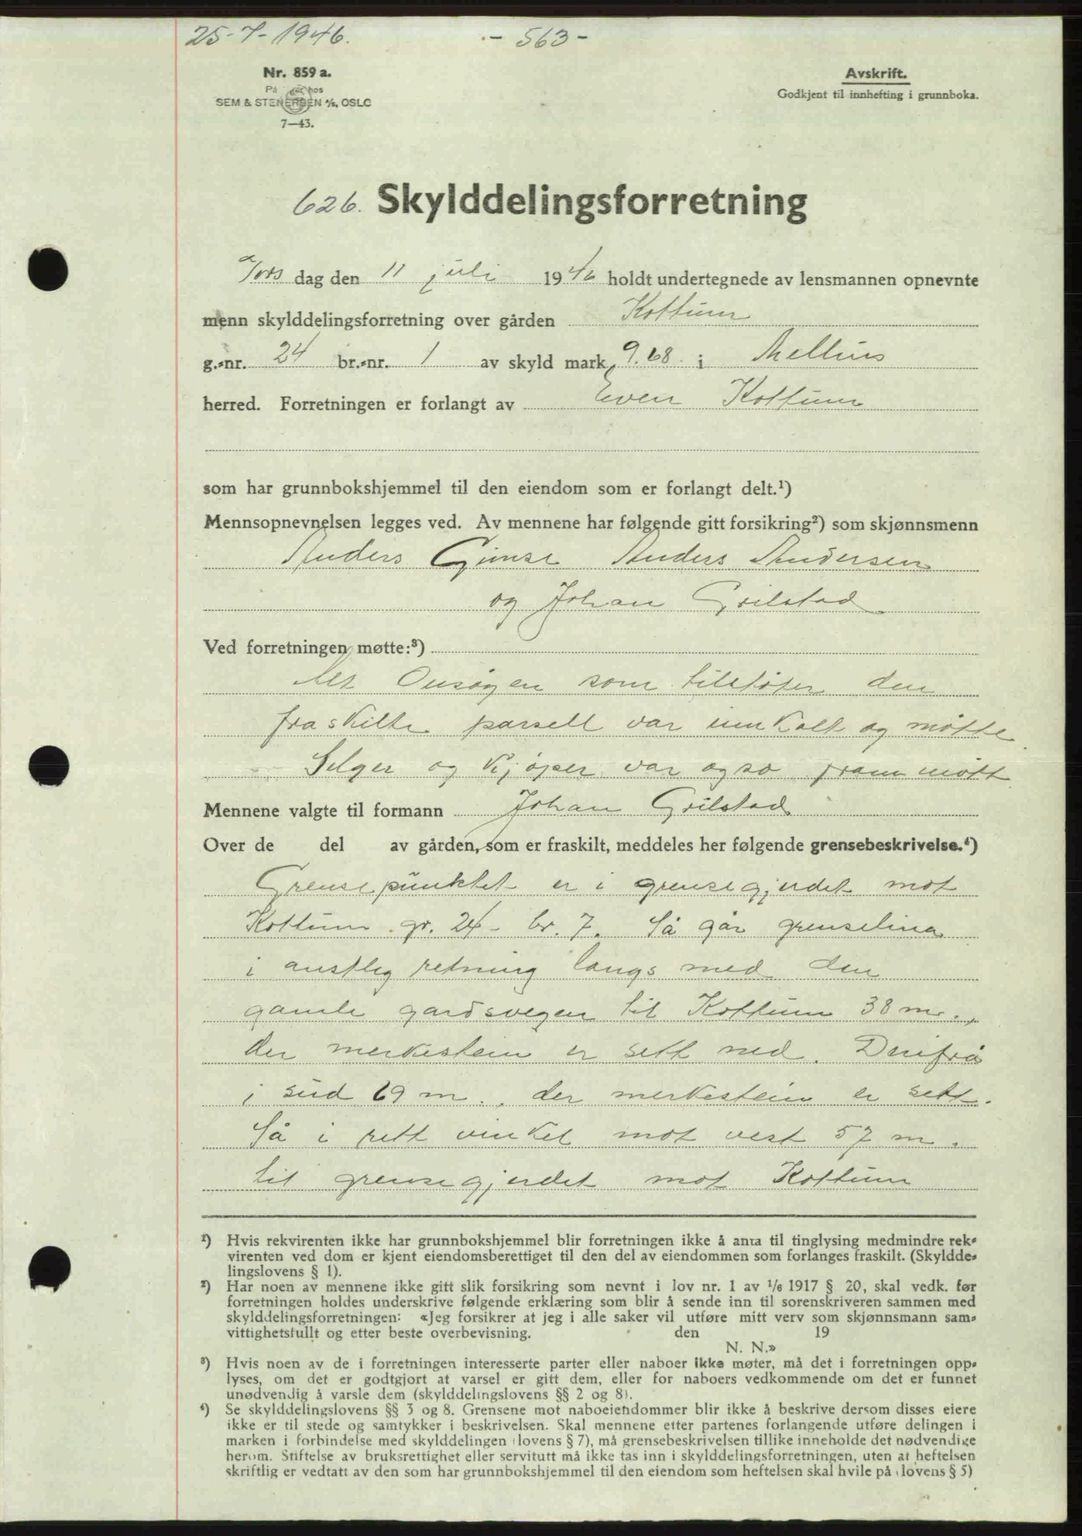 25-7-1946. - 563 -
Nr. 859 a.
På hos
SEM & STENERSEN A/S, OSLO
7—43.
Avskrift.
Godkjent til innhefting i grunnboka.
626. Skylddelingsforretning
Tors dag den 11 juli 1946 holdt undertegnede av lensmannen opnevnte
menn skylddelingsforretning over gården Kottum
g.-nr. 24 br.-nr. 1 av skyld mark 9.68 i Melhus
herred. Forretningen er forlangt av Even Kottum
som har grunnbokshjemmel til den eiendom som er forlangt delt.¹)
Mennsopnevnelsen legges ved. Av mennene har følgende gitt forsikring²) som skjønnsmenn
Anders Gimse Anders Andersen
og Johan Grilstad
Ved forretningen møtte:³)
som tilstøter den
fraskilte parsell var innkalt og møtte.
Selger og kjøper var også fram møtt
Mennene valgte til formann Johan Grilstad
Over de del av gården, som er fraskilt, meddeles her følgende grensebeskrivelse.⁴)
Grensepunktet er i grensegjerdet mot
Kottum gr. 24 - br. 7. Så går grenselina
i austleg retning langs med den
gamle gardsvegen til Kottum 38 m.,
der merkestein er sett ned. Derifrå
i sud 69 m., der merkestein er sett.
Så i rett vinkel mot vest 57 m.
til grensegjerdet mot Kottum
¹) Hvis rekvirenten ikke har grunnbokshjemmel blir forretningen ikke å anta til tinglysing medmindre rek-
virenten ved dom er kjent eiendomsberettiget til den del av eiendommen som forlanges fraskilt. (Skyldde-
lingslovens § 1).
²) Har noen av mennene ikke gitt slik forsikring som nevnt i lov nr. 1 av 1/6 1917 § 20, skal vedk. før
forretningen holdes underskrive følgende erklæring som blir å sende inn til sorenskriveren sammen med
skylddelingsforretningen: «Jeg forsikrer at jeg i alle saker vil utføre mitt verv som skjønnsmann sam-
vittighetsfullt og etter beste overbevisning. den 19
N. N.»
³) Hvis noen av de i forretningen interesserte parter eller naboer ikke møter, må det i forretningen opp-
lyses, om det er godtgjort at varsel er gitt dem, eller for naboers vedkommende om det er funnet
unødvendig å varsle dem (skylddelingslovens §§ 2 og 8).
⁴) Se skylddelingslovens §§ 3 og 8. Grensene mot naboeiendommer blir ikke å beskrive dersom disses eiere
ikke er til stede og samtykker i beskrivelsen. Skal mennene etter partenes forlangende utføre delingen i
marken i forbindelse med skylddelingen (lovens § 7), må grensebeskrivelsen tillike inneholde det nødvendige
herom. Stiftelse av bruksrettighet eller servitutt må ikke tas inn i skylddelingsforretningen, uten at heftelsen
skriftlig er vedtatt av den som har grunnbokshjemmel til den eiendom som heftelsen skal hvile på (lovens § 5)